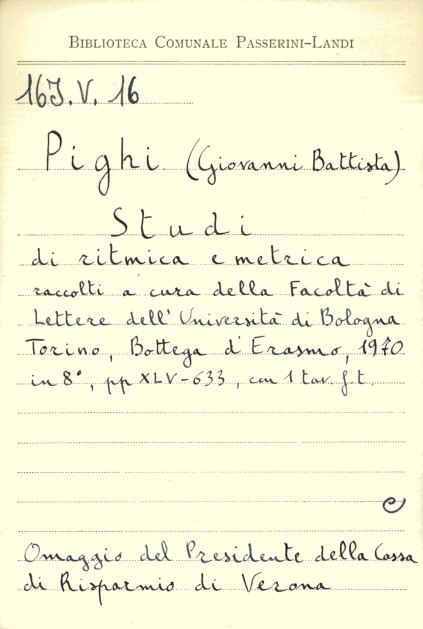 BIBLIOTECA COMUNALE PASSERINI-LANDI
16J.V.16
Pighi (Giovanni Battista)
Studi
di ritmica e metrica
raccolti a cura della Facoltà di
Lettere dell'Università di Bologna
Torino, Bottega d'Erasmo, 1970
in 8°, pp XLV-633, con 1 tav. f.t.
e
Omaggio del Presidente della Cassa
di Risparmio di Verona